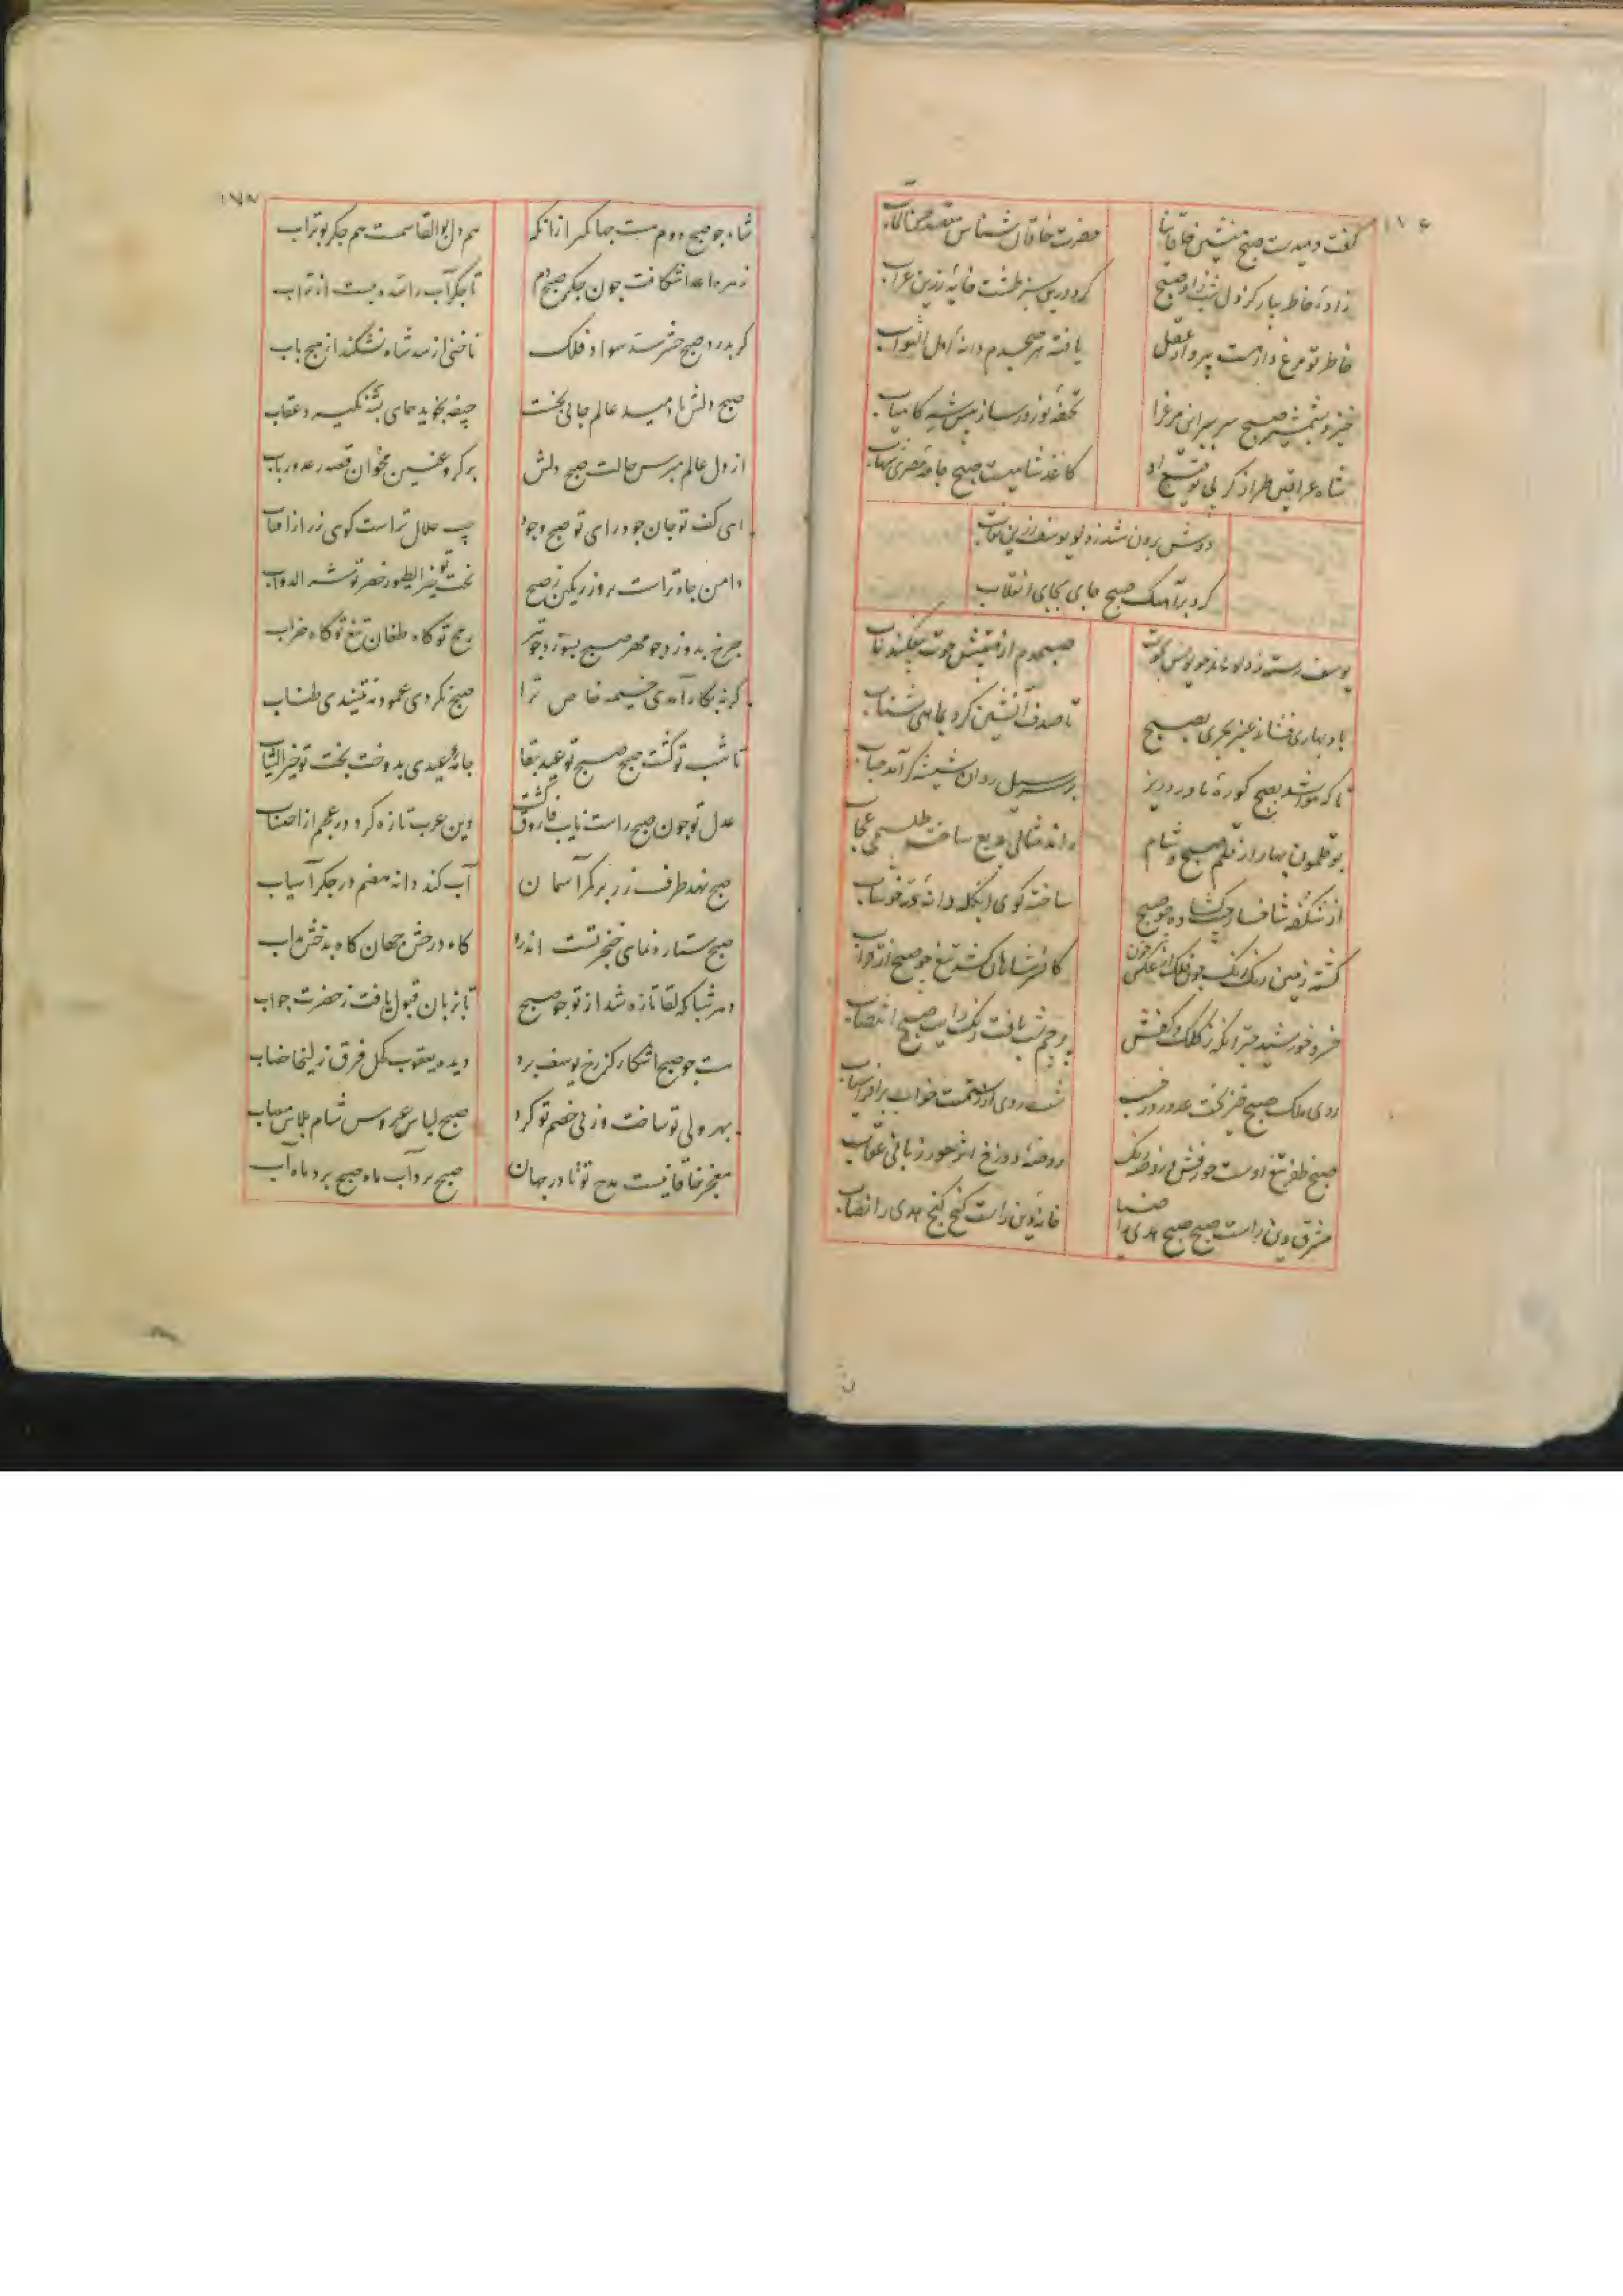 گفت دمیدست صبح منشین خاقانیا
حضرت خاقان شناس مقصد حسن المآب
زادهٔ خاطر بیار کز دل شب زاد صبح
کرد درین سبز طشت خایهٔ زرین عزاب
خاطر تو مرغ وارهست بپرواز عقل
یافته هر صبحدم دانهٔ اهل الثواب
خیز و بشمشیر صبح سر ببر این مرغ را
تحفهٔ نوروز ساز پیش شه کامیاب
شاه عراقین طراز کز پی توقیع او
کاغذ شامیست صبح خامه مصری شهاب
دوش برون شد ز دلو یوسف زرین نقاب
کرد بر آهنگ صبح جای بجای انقلاب
یوسف رسته ز دلو ماند چو یونس بحوت
صبحدم از هیبتش حوت بیفکند ناب
باد بهاری فشاند عنبر بحری بصبح
تا صدف آتشین کرد بماهی شتاب
تا که هوا شد بصبح کورهٔ ماورد ریز
بر سر سیل روان شیشه گر آمد حباب
بوقلمون بهار از قلم صبح و شام
راند مثالی بدیع ساخت طلسمی عجاب
از شکفه شاخسار جیب گشاده چو صبح
ساخته گوی انگله دانهٔ در خوشاب
گشته زمین رنگ رنگ چون فلک از عکس خون
کافر شاهان کشد تیغ چو صبح از قراب
خسرو خورشید چتر آنکه ز کلک و کفش
پرچم شب یافت رنگ رایت صبح انتصاب
روی ملک صبح خیز بخت عدو روز خسب
شب روی از رستمست خواب ز افراسیاب
صبح ظفر تیغ اوست حور فش و روضه رنگ
روضهٔ دوزخ اثر حور زبانی عقاب
مشرق دین راست صبح صبح هدی را ضیا
خانهٔ دین راست گنج گنج هدی را نصاب
۱۷۸
شاه چو صبح دوم هست جهانگیر از انک
هم دل بوالقاسمست هم جگر بوتراب
زهرهٔ اعدا شکافت چون جگر صبحدم
تا جگر آب را سده ببست از تراب
گر بدرد صبح حشر سد سواد فلک
ناخنی از سد شاه نشکند از هیچ باب
صبح دلش تا دمید عالم جافی بخست
جیفه نجوید همای پشه نگیرد عقاب
از دل عالم مپرس حالت صبح دلش
بر کر و عنین مخوان قصهٔ رعد و رباب
ای کف تو جان جود رای تو صبح وجود
چیست حلال تراست گوی زر از آفتاب
دامن جاه تراست پروز رنگین ز صبح
تخت تو خیر الطیور خصم تو شر الدواب
چرخ بدوزد چو مهر صبح بسوزد چو تیر
رمح تو گاه طعان تیغ تو گاه ضراب
گر نه بکار آمدی خیمهٔ خاص ترا
صبح نکردی عمود مه نتنیدی طناب
تا شب تو گشت صبح صبح تو عید بقا
جامهٔ عیدی بدوخت بخت تو خیر الثیاب
عدل تو چون صبح راست نایب فاروق گشت
دین عرب تازه کرد در عجم از احتساب
صبح نهد طرف زر بر کمر آسمان
آب کند دانه هضم در جگر آسیاب
صبح ستاره نمای خنجر تست اندرو
گاه درخش جهان گاه بدخش مذاب
دهر شبانگه لقا تازه شد از تو چو صبح
تا ز زبان قبول یافت ز حضرت جواب
هست چو صبح آشکار کز رخ یوسف برد
دیدهٔ یعقوب کحل فرق زلیخا خضاب
بهر ولی تو ساخت وز پی خصم تو کرد
صبح لباس عروس شام پلاس مصاب
مفخر خاقانیست مدح تو تا در جهان
صبح برد آب ماه ماه برد آب